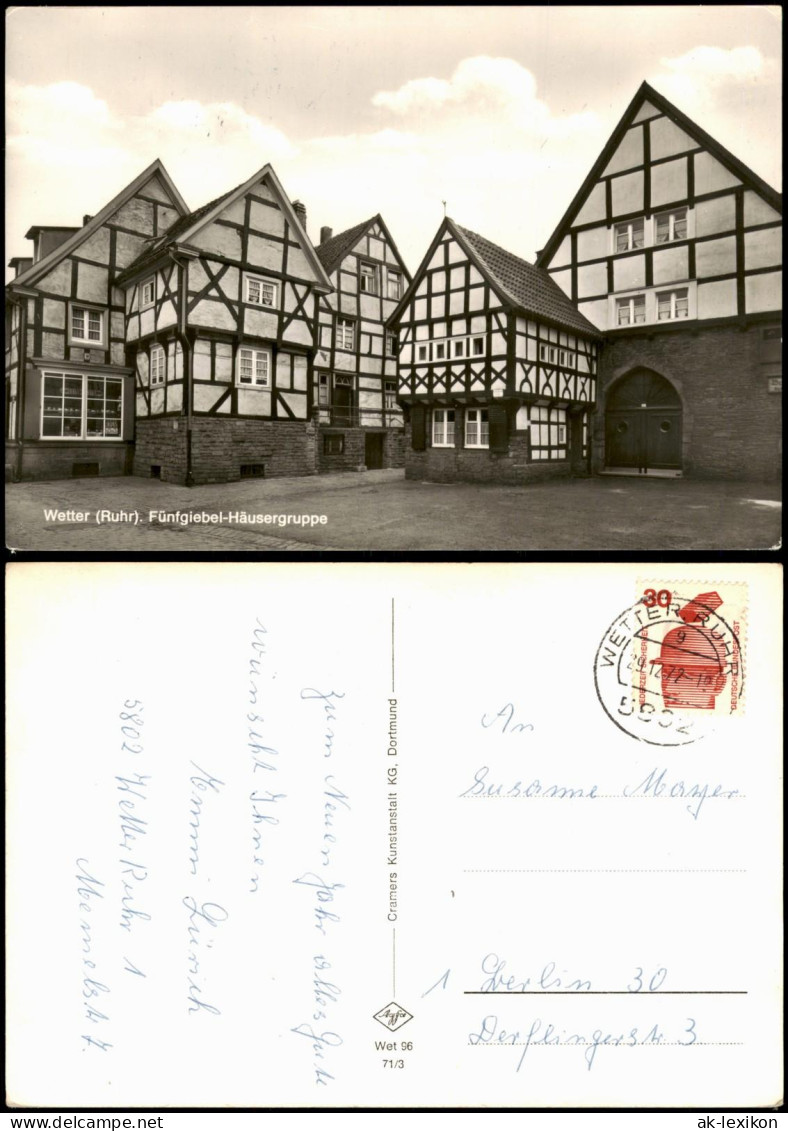 Wetter (Ruhr). Fünfgiebel-Häusergruppe
Zum Neuen Jahr alles Gute
wünscht Ihnen
5802 Wetter Ruhr 1
Memelstr 7
Cramers Kunstanstalt KG, Dortmund
Agfa
Wet 96
71/3
30
JEDERZEIT SICHERHEIT
DEUTSCHE BUNDESPOST
WETTER RUHR
g
29.12.72
5802
An
Susanne Mayer
1 Berlin 30
Derflingerstr 3
ak-lexikon